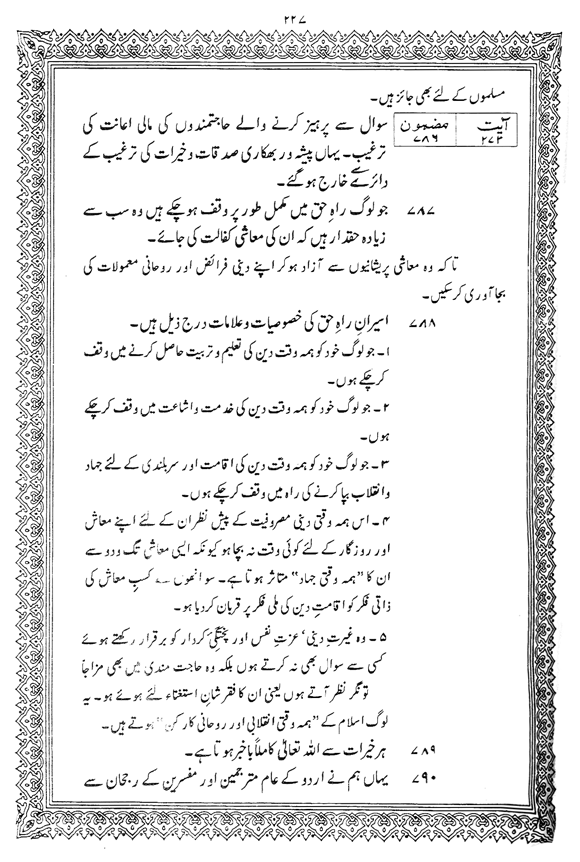 ۲۲۷
مسلموں کے لئے بھی جائز ہیں۔
آیت ۲۷۳ مضمون ۷۸۶ سوال سے پرہیز کرنے والے حاجتمندوں کی مالی اعانت کی
ترغیب۔ یہاں پیشہ ور بھکاری صدقات و خیرات کی ترغیب کے
دائرے خارج ہو گئے۔
۷۸۷ جو لوگ راہِ حق میں مکمل طور پر وقف ہو چکے ہیں وہ سب سے
زیادہ حقدار ہیں کہ ان کی معاشی کفالت کی جائے۔
تا کہ وہ معاشی پریشانیوں سے آزاد ہو کر اپنے دینی فرائض اور روحانی معمولات کی
بجا آوری کر سکیں۔
۷۸۸ اسیرانِ راہِ حق کی خصوصیات و علامات درج ذیل ہیں۔
۱۔ جو لوگ خود کو ہمہ وقت دین کی تعلیم و تربیت حاصل کرنے میں وقف
کر چکے ہوں۔
۲۔ جو لوگ خود کو ہمہ وقت دین کی خدمت و اشاعت میں وقف کر چکے
ہوں۔
۳۔ جو لوگ خود کو ہمہ وقت دین کی اقامت اور سربلندی کے لئے جہاد
و انقلاب بپا کرنے کی راہ میں وقف کر چکے ہوں۔
۴۔ اس ہمہ وقتی دینی مصروفیت کے پیش نظر ان کے لئے اپنے معاش
اور روزگار کے لئے کوئی وقت نہ بچا ہو کیونکہ ایسی معاش تگ و دو سے
ان کا "ہمہ وقتی جہاد" متاثر ہوتا ہے۔ سو انھوں نے کسبِ معاش کی
ذاتی فکر کو اقامتِ دین کی ملی فکر پر قربان کر دیا ہو۔
۵۔ وہ غیرتِ دینی، عزتِ نفس اور پختگیٔ کردار کو برقرار رکھتے ہوئے
کسی سے سوال بھی نہ کرتے ہوں بلکہ وہ حاجت مندی میں بھی مزاجاً
تونگر نظر آتے ہوں یعنی ان کا فقر شانِ استغناء لئے ہوئے ہو۔ یہ
لوگ اسلام کے "ہمہ وقتی انقلابی اور روحانی کارکن" ہوتے ہیں۔
۷۸۹ ہر خیرات سے اللہ تعالیٰ کاملاً باخبر ہوتا ہے۔
۷۹۰ یہاں ہم نے اردو کے عام مترجمین اور مفسرین کے رجحان سے